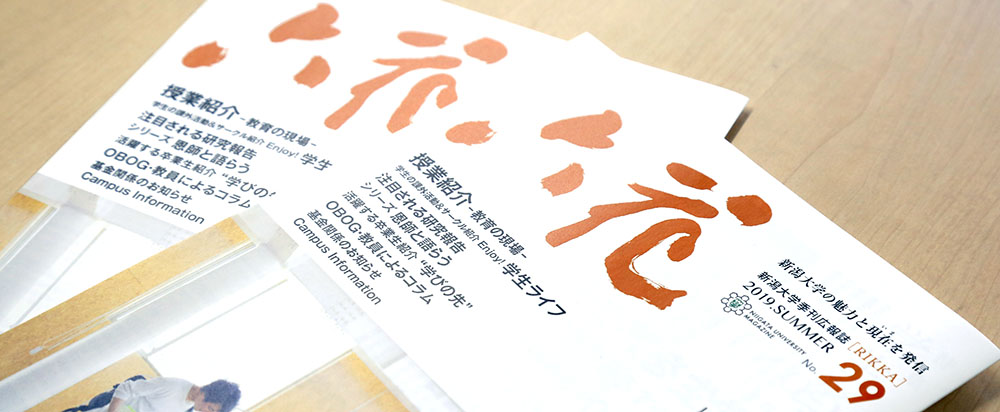 六花
授業紹介-教育の現場-
学生の課外活動&サークル紹介 Enjoy! 学生
注目される研究報告
シリーズ 恩師と語らう
活躍する卒業生紹介 “学びの
OBOG・教員によるコラム
基金関係のお知らせ
Campus Information
六花
授業紹介-教育の現場-
学生の課外活動&サークル紹介 Enjoy! 学生ライフ
注目される研究報告
シリーズ 恩師と語らう
活躍する卒業生紹介 “学びの先”
OBOG・教員によるコラム
基金関係のお知らせ
Campus Information
新潟大学の魅力と現在を発信
新潟大学季刊広報誌 [RIKKA]
2019.SUMMER
NIIGATA UNIVERSITY
MAGAZINE
No. 29